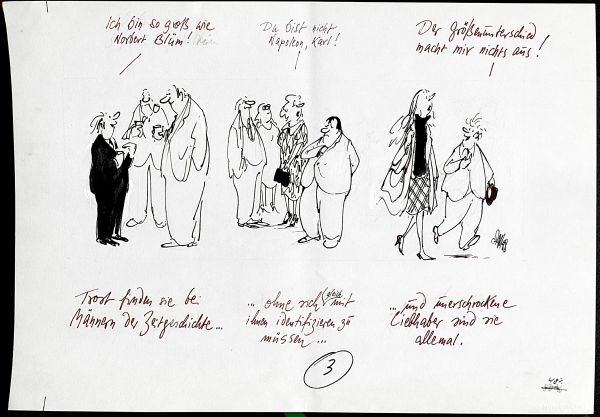 Ich bin so groß wie
Norbert Blüm!
Du bist nicht
Napoleon, Karl!
Der Größenunterschied
macht mir nichts aus!
Trost finden sie bei
Männern der Zeitgeschichte...
... ohne sich gleich mit
ihnen identifizieren zu
müssen...
...und unerschrockene
Liebhaber sind sie
allemal.
3